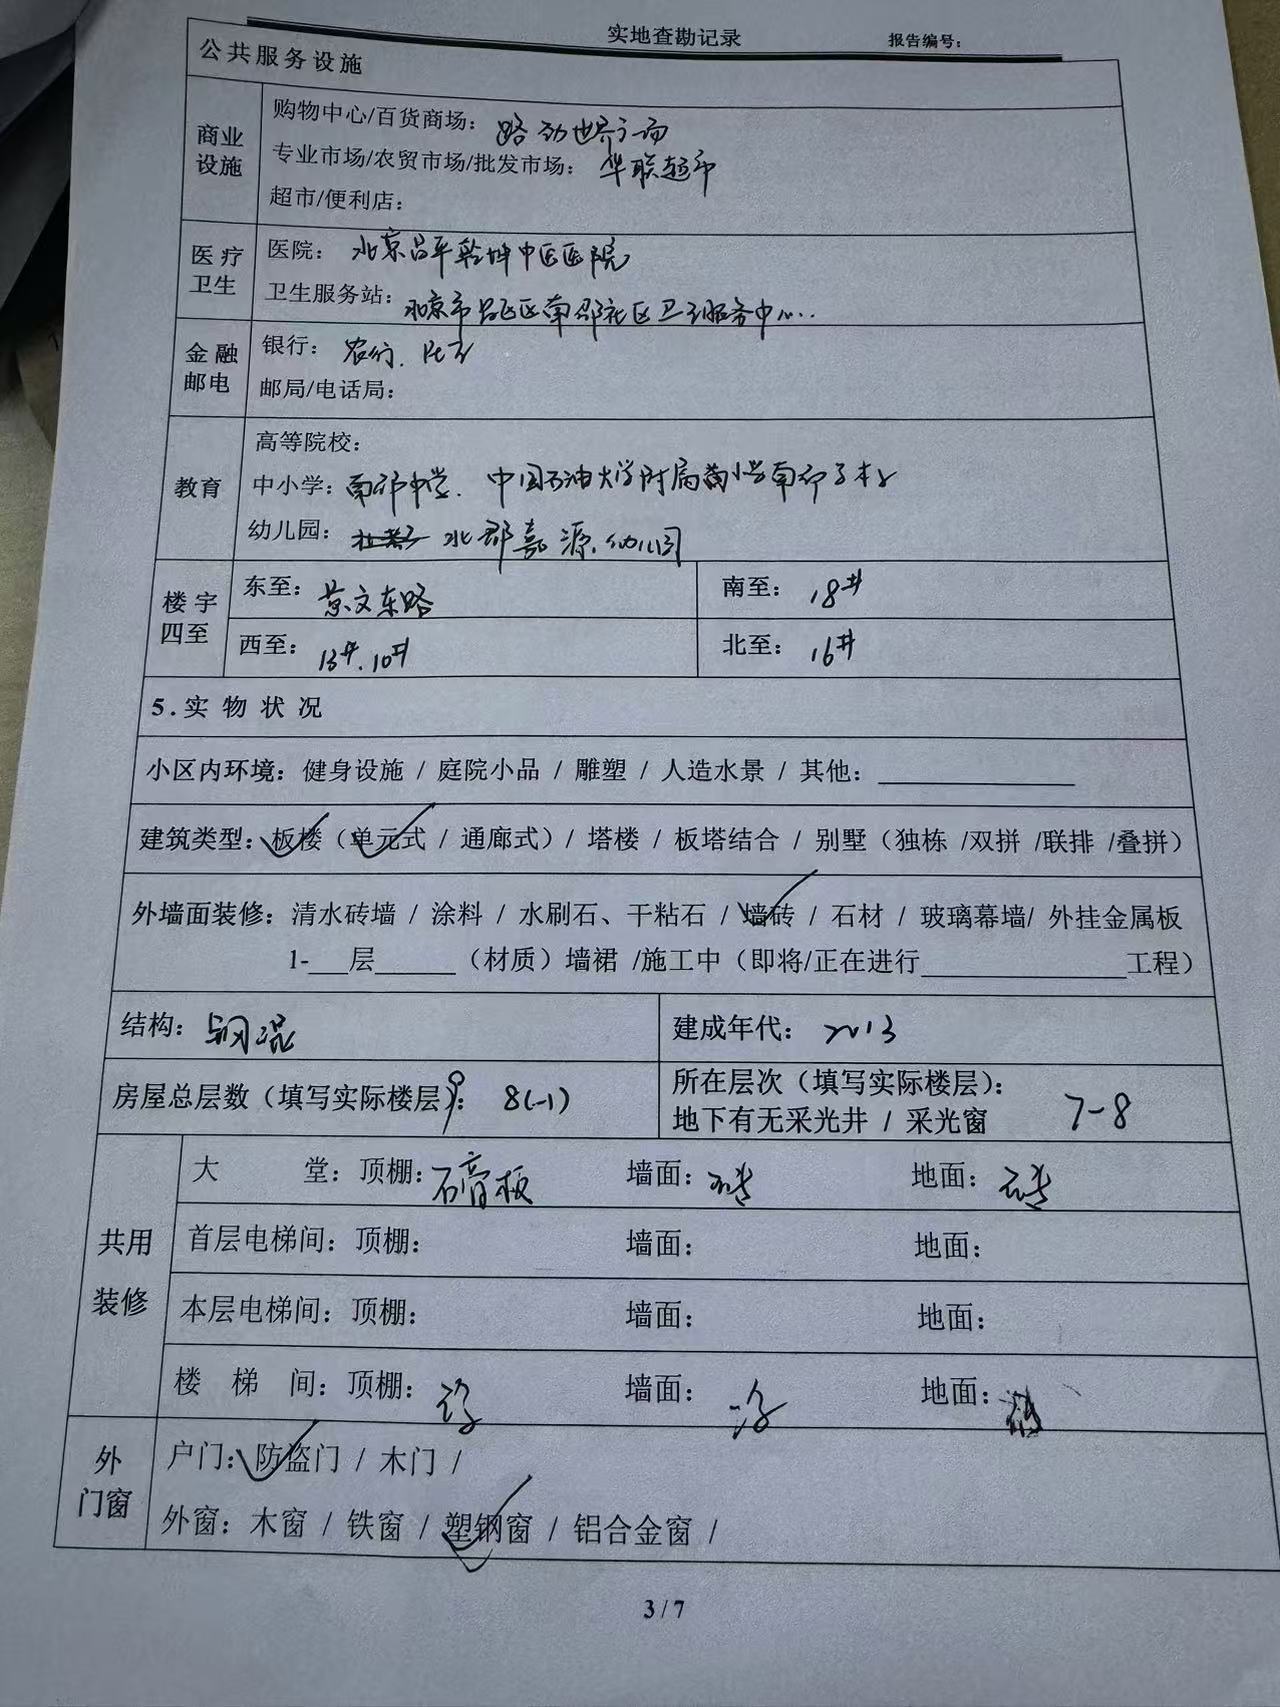 实地查勘记录 报告编号：
公共服务设施
商业设施
购物中心/百货商场：路劲世界广场
专业市场/农贸市场/批发市场：华联超市
超市/便利店：
医疗卫生
医院：北京昌平乾坤中医医院
卫生服务站：北京市昌平区南邵社区卫生服务中心..
金融邮电
银行：农行.
邮局/电话局：
教育
高等院校：
中小学：南邵中学. 中国石油大学附属小学南邵
幼儿园：北郡嘉源幼儿园
楼宇四至
东至：景文东路 南至：18#
西至：13#.10# 北至：16#
5.实物状况
小区内环境：健身设施 / 庭院小品 / 雕塑 / 人造水景 / 其他：
建筑类型：板楼（单元式 / 通廊式）/ 塔楼 / 板塔结合 / 别墅（独栋 /双拼 /联排 /叠拼）
外墙面装修：清水砖墙 / 涂料 / 水刷石、干粘石 / 墙砖 / 石材 / 玻璃幕墙/ 外挂金属板
1-___层______（材质）墙裙 /施工中（即将/正在进行_______________工程）
结构：钢混 建成年代：2013
房屋总层数（填写实际楼层）：8(-1) 所在层次（填写实际楼层）：7-8
地下有无采光井 / 采光窗
共用装修
大堂：顶棚：石膏板 墙面：砖 地面：砖
首层电梯间：顶棚： 墙面： 地面：
本层电梯间：顶棚： 墙面： 地面：
楼梯间：顶棚： 墙面： 地面：
外门窗
户门：防盗门 / 木门 /
外窗：木窗 / 铁窗 / 塑钢窗 / 铝合金窗 /
3/7